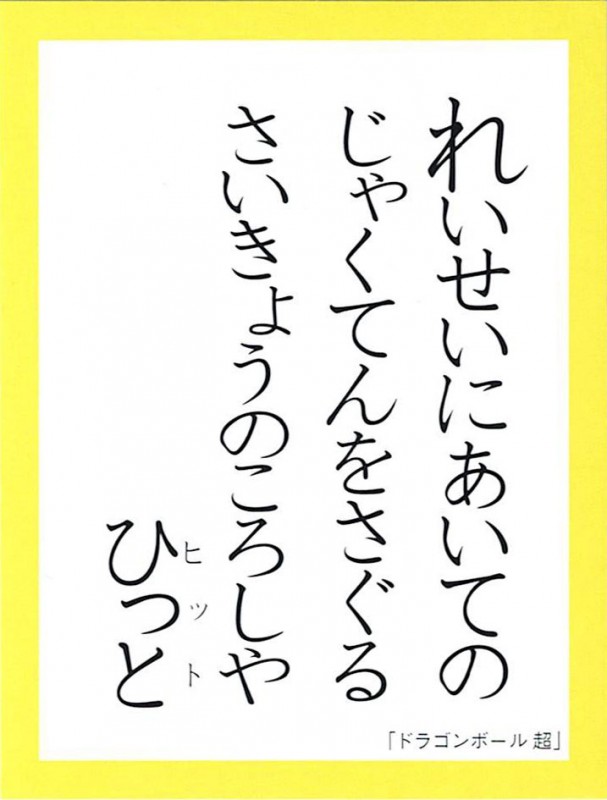 れいせいにあいての
じゃくてんをさぐる
さいきょうのころしや
ひっと
ヒット
「ドラゴンボール 超」